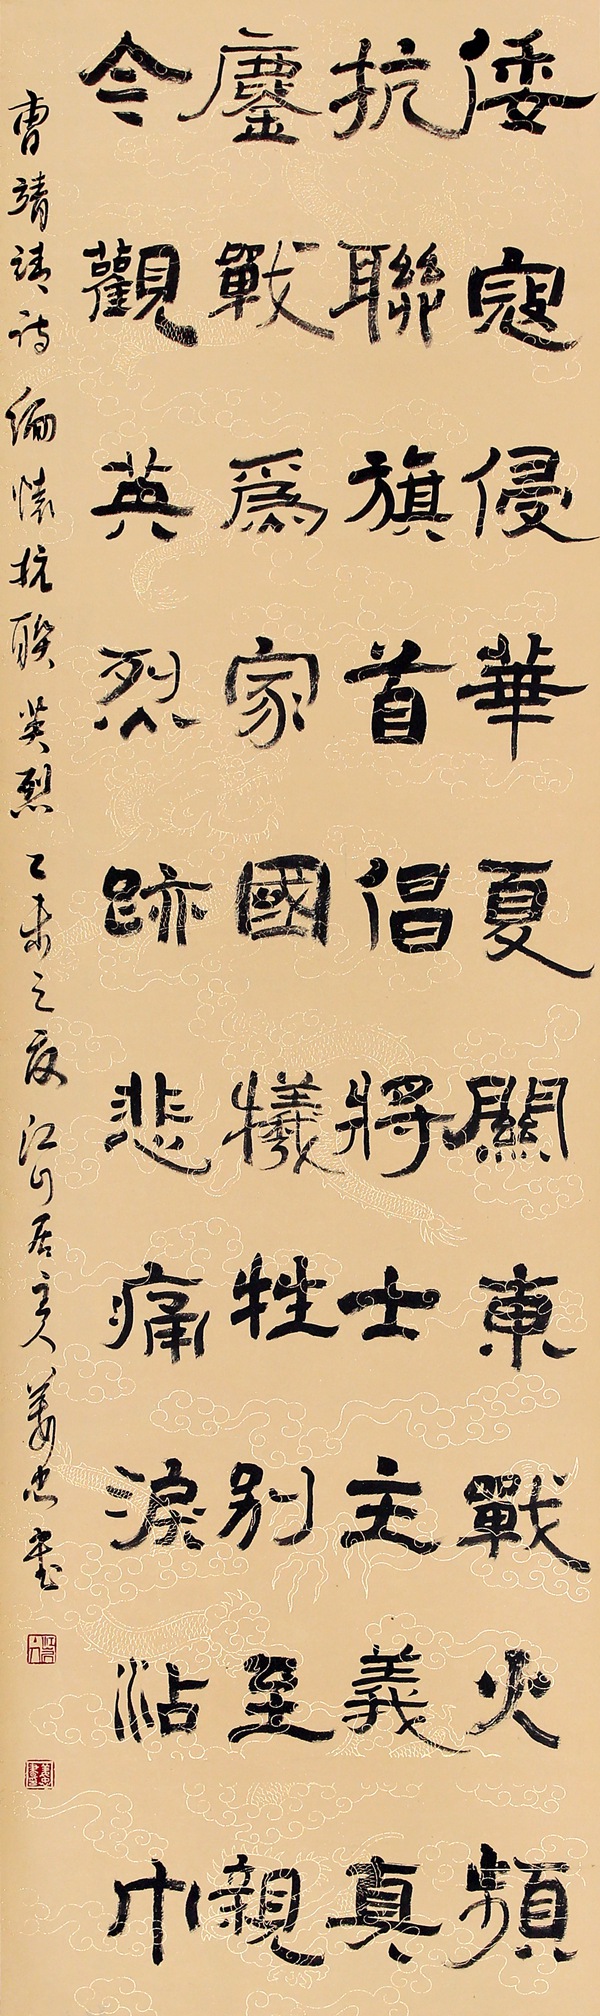 倭寇侵華夏關東戰火頻
抗聯旗首倡將士主義真
鏖戰為家國犧牲別至親
今觀英烈跡悲痛淚沾巾
曹靖靖詩緬懷抗聯英烈乙未之夜江川居主人姜忠書